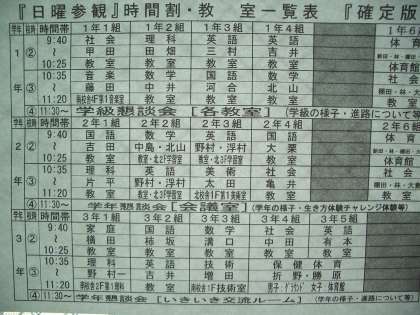 『日曜参観』時間割・教 室一覧表 『確定版
学年 校時 時間帯 1年1組 1年2組 1年3組 1年4組 1年6
1 ② 9:40 社会 理科 英語 英語 体育
~ 甲田 田畑 三村 吉井
10:25 教室 教室 教室 教室 体育館
年 ③ 10:35 音楽 数学 国語 数学 社会
~ 藤田 中井 河合 北山
11:20 南校舎4F第1音楽室 教室 教室 教室 教室
④ 11:30~ 学級懇談会 [各教室] (学級の様子・進路について等)
学年 校時 時間帯 2年1組 2年2組 2年3組 2年4組 2年6組
2 ② 9:40 国語 数学 英語 国語 体育
~ 吉田 中島・北山 野村・浮村 大栗
10:25 教室 教室・北3F学習室 教室・北2F学習室 教室 体育館
年 ③ 10:35 理科 英語 美術 社会 社会
~ 片平 野村・浮村 太田 亀井
11:20 教室 教室・北2F学習室 北校舎1F第1美術室 教室 教室
④ 11:30~ 学年懇談会 [会議室] (学年の様子・生き方体験チャレンジ体験等)
学年 校時 時間帯 3年1組 3年2組 3年3組 3年4組 3年5組
3 ② 9:40 家庭 国語 数学 社会 英語
~ 横田 柿坂 溝口 中田 有本
10:25 教室 教室 教室 教室 教室
年 ③ 10:35 理科 英語 技術 保健体育
~ 野村一 吉井 増田 折野・勝原
11:20 南校舎2F第1理科 教室 南校舎1F技術室 男子:グランド 女子:体育館
④ 11:30~ 学年懇談会 [いきいき交流ルーム] (学年の様子・進路について等)